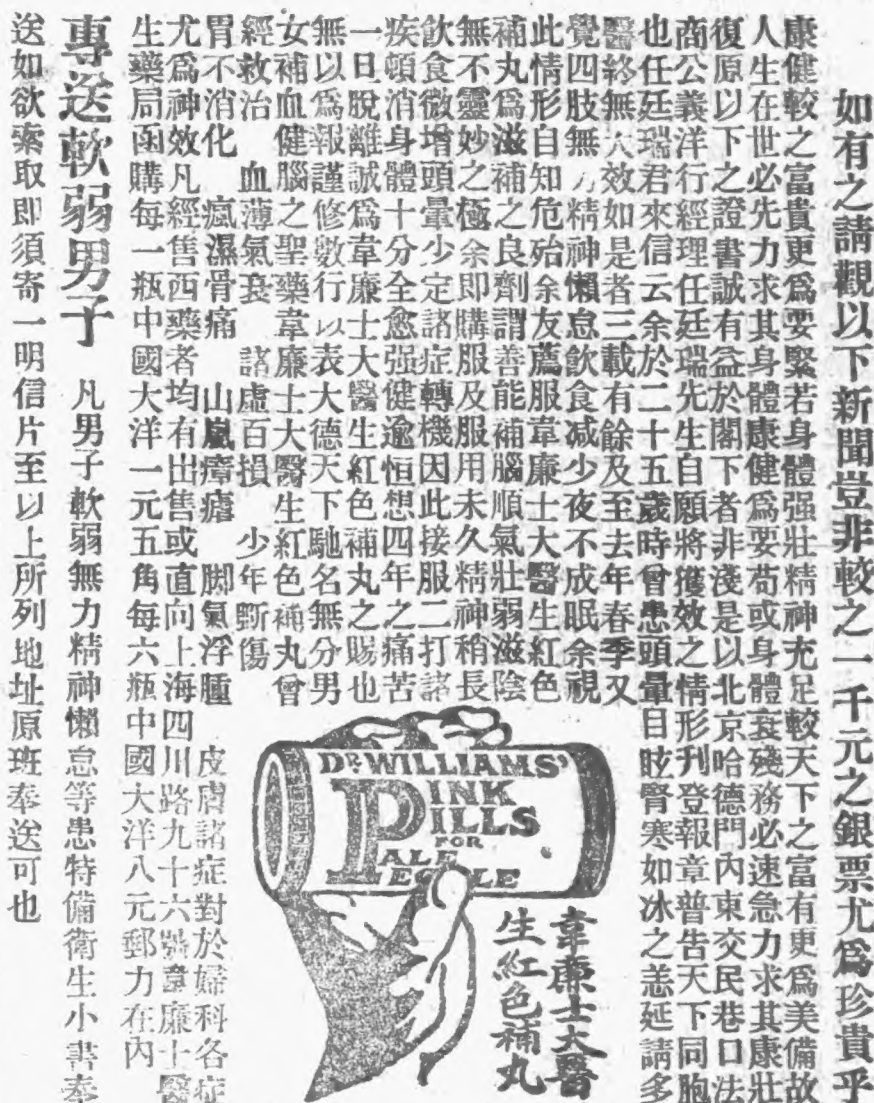 如有之請觀以下新聞豈非較之一千元之銀票尤爲珍貴乎
康健較之富貴更爲要緊若身體强壯精神充足較天下之富有更爲美備故
人生在世必先力求其身體康健爲要苟或身體衰殘務必速急力求其康壯
復原以下之證書誠有益於閣下者非淺是以北京哈德門內東交民巷口法
商公義洋行經理任廷瑞先生自願將獲效之情形刋登報章普告天下同胞
也任廷瑞君來信云余於二十五歲時曾患頭暈目眩腎寒如冰之恙延請多
醫終無大效如是者三載有餘及至去年春季又
覺四肢無力精神懶怠飲食减少夜不成眠余視
此情形自知危殆余友薦服韋廉士大醫生紅色
補丸爲滋補之良劑謂善能補腦順氣壯弱滋陰
無不靈妙之極余即購服及服用未久精神稍長
飲食微增頭暈少定諸症轉機因此接服二打諸
疾頓消身體十分全愈强健逾恒想四年之痛苦
一旦脫離誠爲韋廉士大醫生紅色補丸之賜也
無以爲報謹修數行以表大德天下馳名無分男
女補血健腦之聖藥韋廉士大醫生紅色補丸曾
經救治 血薄氣衰 諸虛百損 少年斲傷
胃不消化 瘋濕骨痛 山嵐瘴瘧 脚氣浮腫 皮膚諸症對於婦科各症
尤爲神效凡經售西藥者均有出售或直向上海四川路九十六號韋廉士醫
生藥局函購每一瓶中國大洋一元五角每六瓶中國大洋八元郵力在內
專送軟弱男子 凡男子軟弱無力精神懶怠等患特備衛生小書奉
送如欲索取即須寄一明信片至以上所列地址原班奉送可也
DR. WILLIAMS'
PINK
PILLS
FOR
PALE
PEOPLE
韋廉士大醫
生紅色補丸